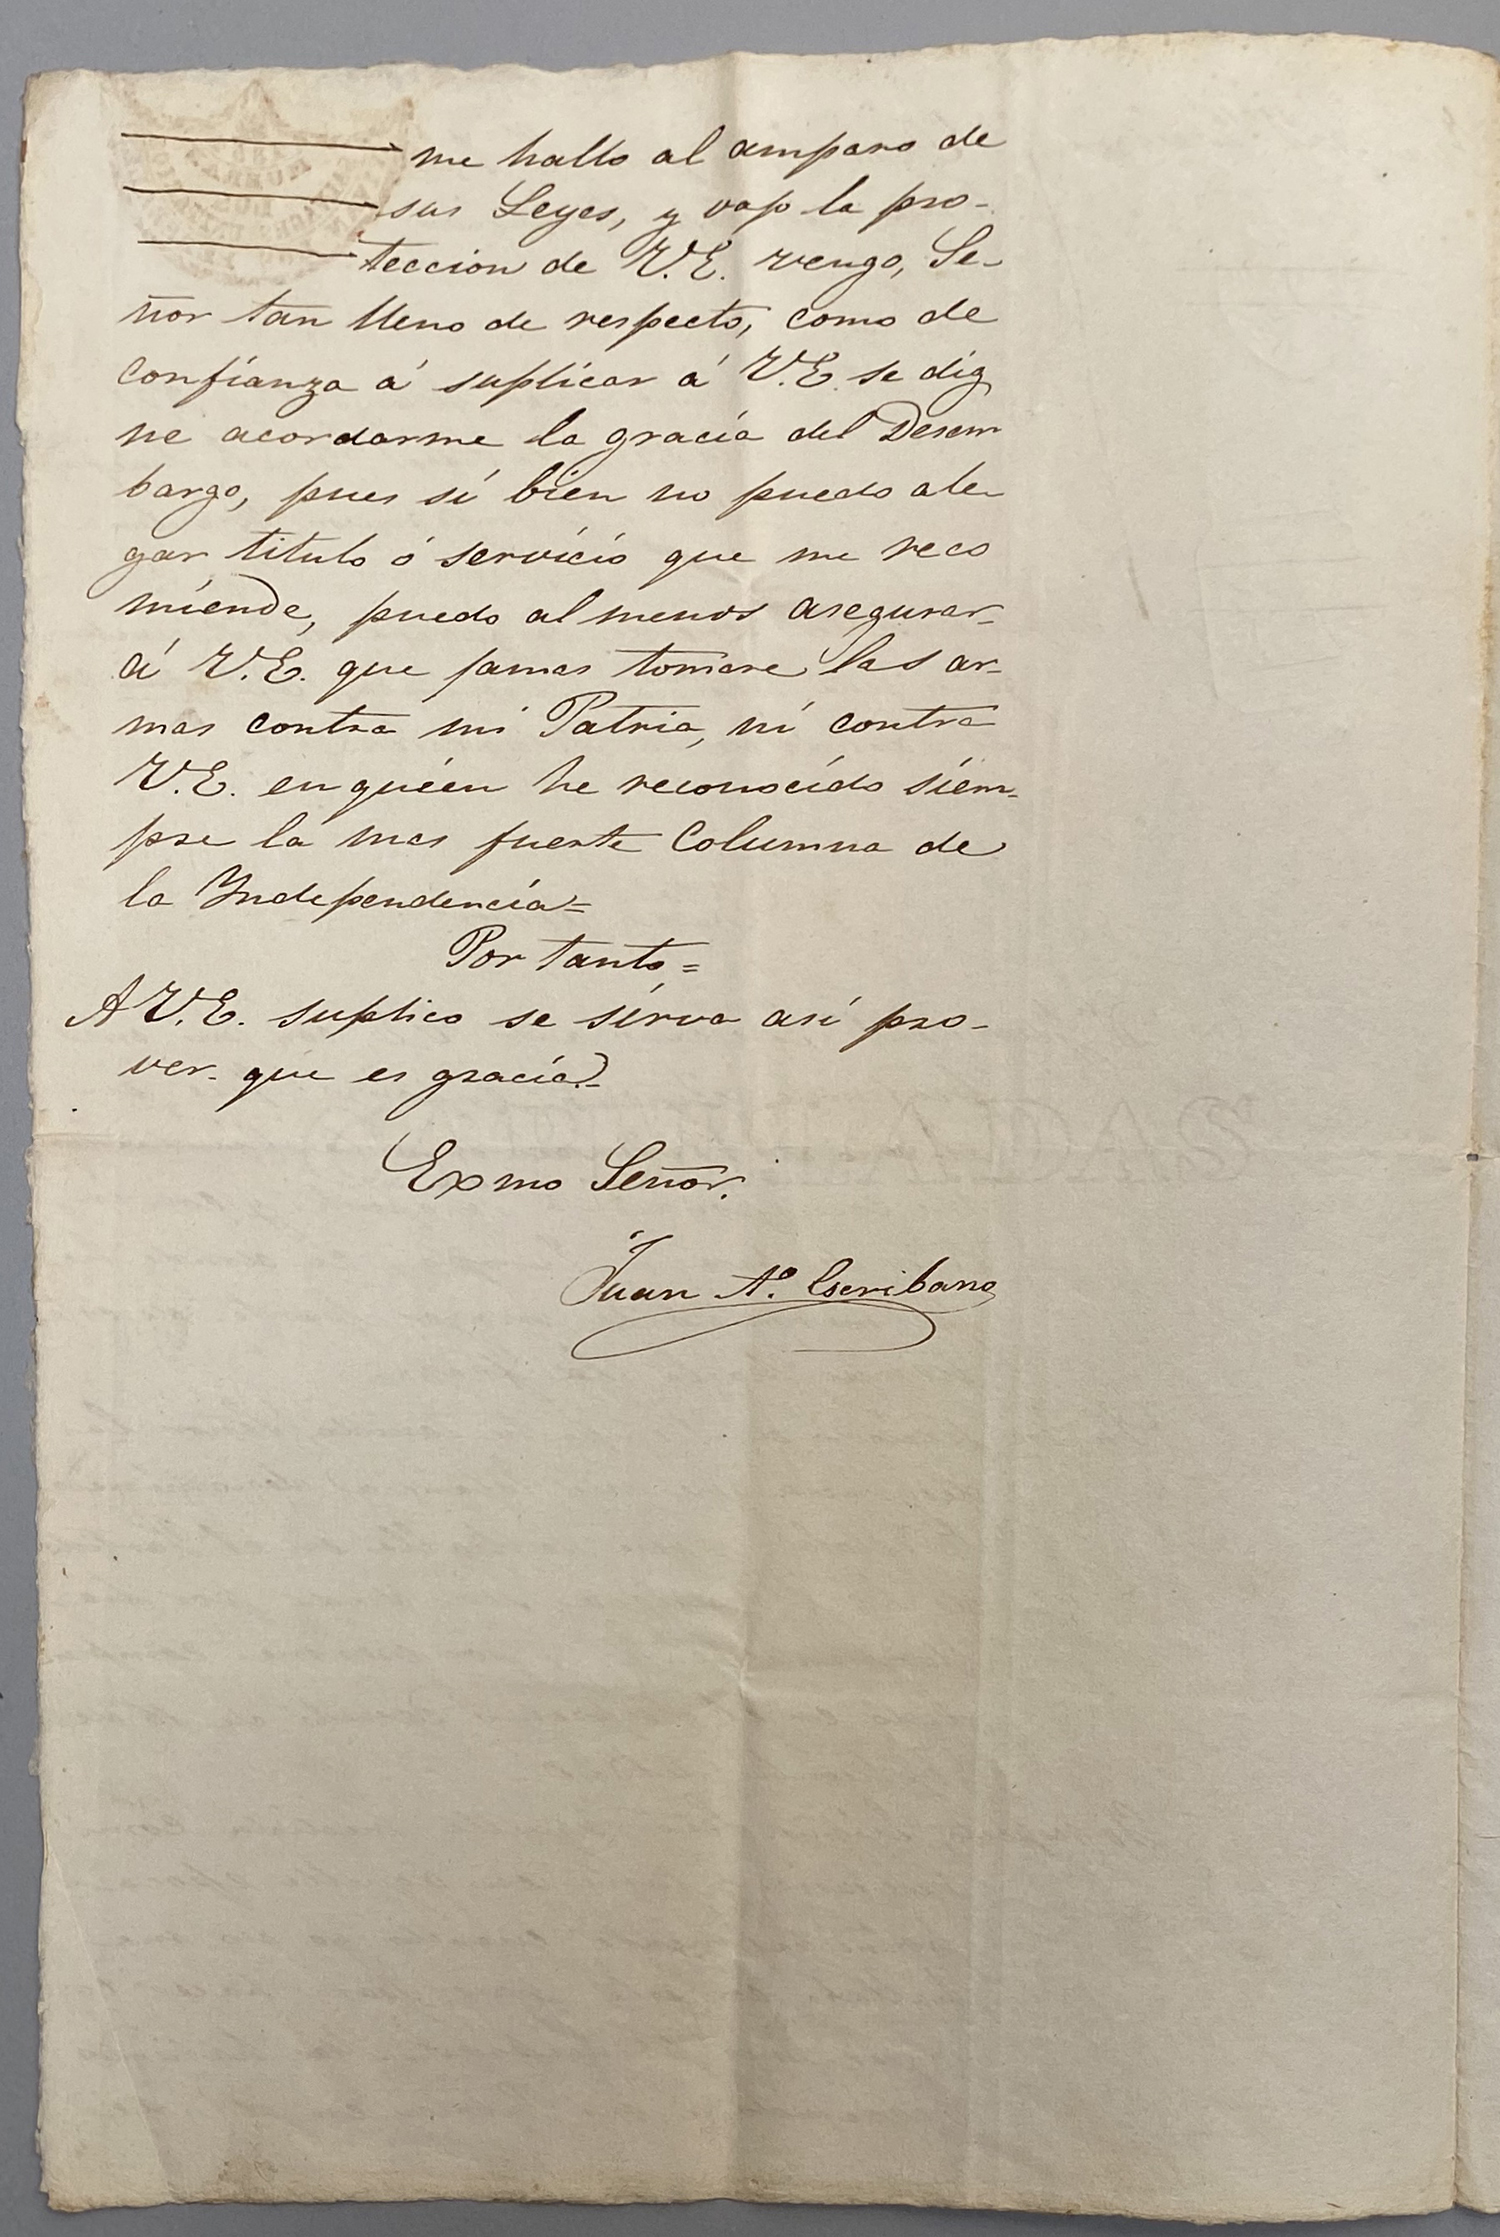 me hallo al amparo de
sus Leyes, y vajo la pro-
teccion de V.E. vengo, Se-
ñor tan lleno de respecto, como de
confianza á suplicar á V.E. se dig
ne acordarme la gracia del Desem
bargo, pues si bien no puedo ale-
gar titulo ó servicio que me reco
miende, puedo al menos asegurar-
á V.E. que jamas tomare las ar-
mas contra mi Patria, ni contra
V.E. en quien he reconocido siem-
pre la mas fuerte Columna de
la Yndependencia=
Por tanto=
A V.E. suplico se sirva asi pro-
ver- que es gracia.-
Exmo Señor.
Juan A.º Escribano